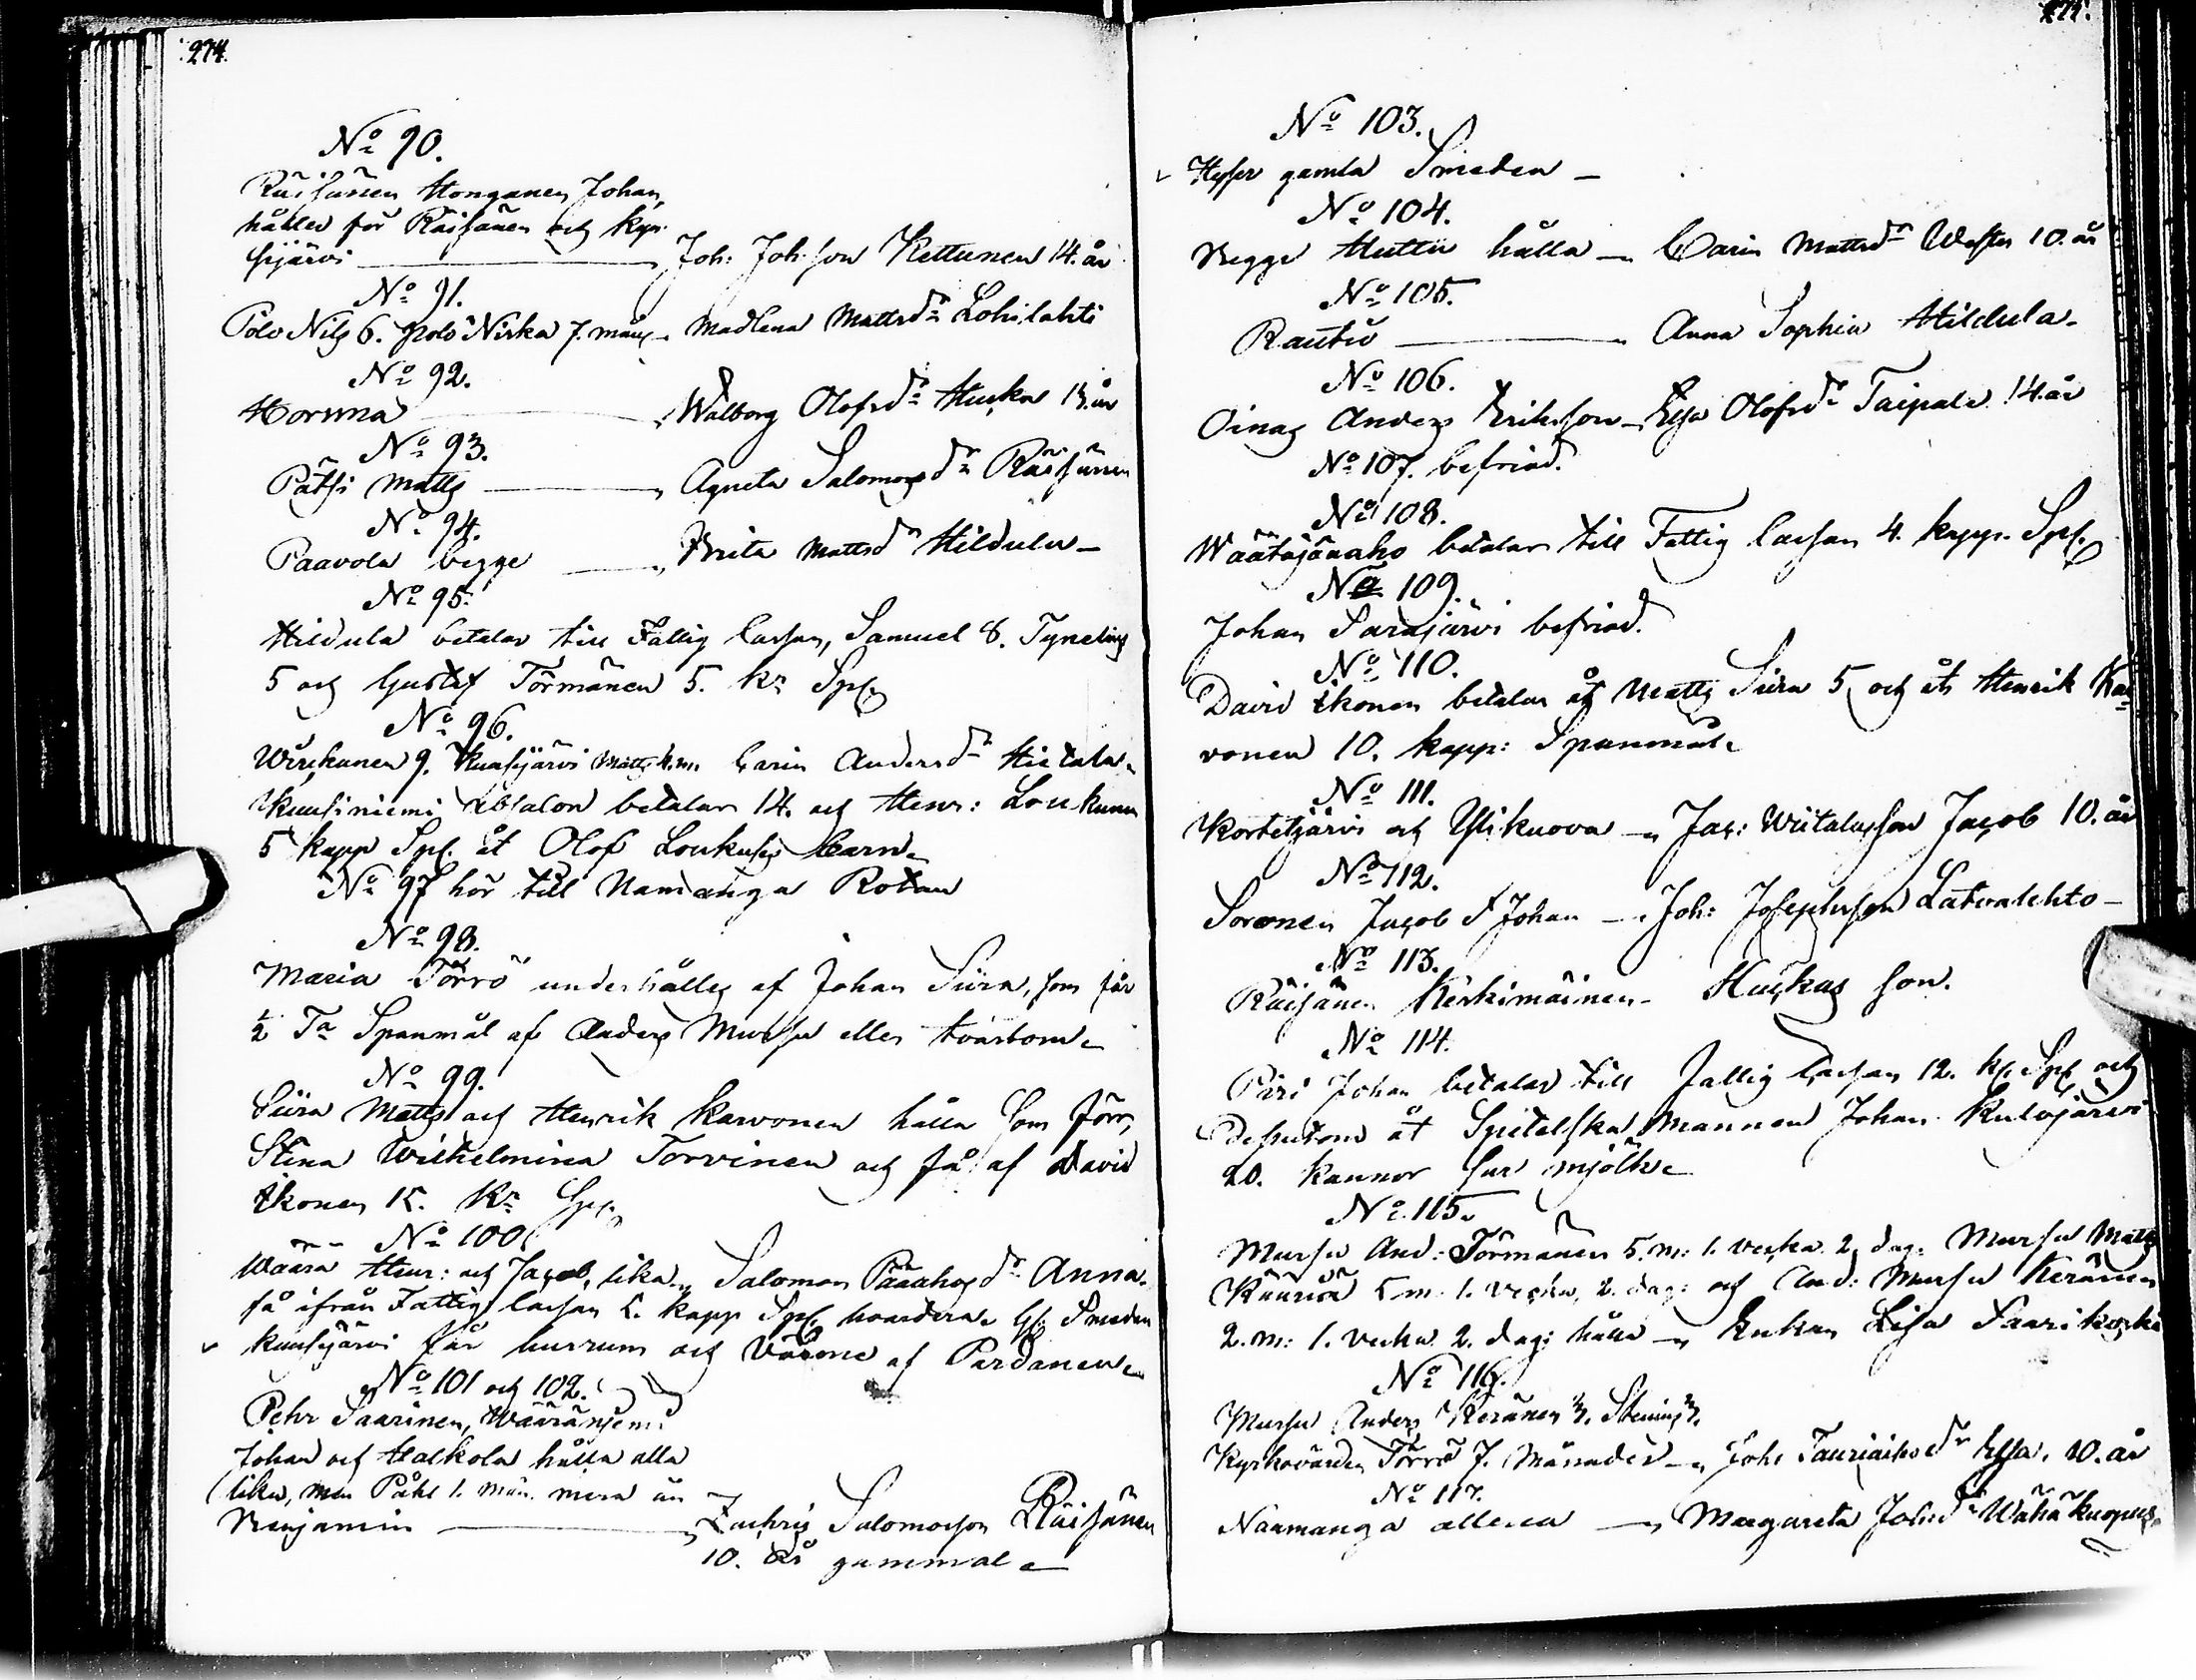 274.
No 90.
Räisänen Honganen Johan,
håller för Räisänen och
sijärvi — Joh: Joh:son Kettunen 14. år
No 91.
Polo Nils 6. Polo Niska 7. mån — Madlena Mattsdr Lohilahti
No 92.
Hornna — Walborg Olofsdr Huska 13. år
No 93.
Pätsi Matts — Agneta Salomonsdr Räisänen
No 94.
Paavola begge — Brita Mattsdr Hildula —
No 95.
Hildula betalar till Fattig Cassan, Samuel 8.
5 och Gustaf Törmänen 5. kr Spl.
No 96.
9. Kuusijärvi Matts 4. m. Carin Andersdr Hietala
Kuusiniemi Absalon betalar 14. och Henr:
5 kapp Spl. åt Olof Loukusas barn.
No 97 hör till Namanga Rotan
No 98.
Maria Törrö underhålles af Johan Siira, som får
1/2 Ta Spanmål af Anders Mursu eller tvärtom.
No 99.
Siira Matts och Henrik Karvonen hålla som förr,
Stina Wilhelmina Torvinen och få af David
Ikonen 15. kr Spl.
No 100.
Wäärä Henr: och Jacob, lika, Salomon Pääahosdr Anna.
få ifrån Fattig Cassan 5. kapp Spl. hvardera. Gl. Smeden
Kuusijärvi får husrum och värme af Pardanen.
No 101 och 102.
Pehr Saarinen, Wääräniemi
Johan och Halkola hålla alla
lika, men Påhl 1. mån. mera än
Benjamin — Zachris Salomonson Räisänen
10. år gammal.
No 103.
Hyser gamla Smeden —
No 104.
Begge Huttu hålla — Carin Mattsdr 10. år
No 105.
Rautio — Anna Sophia Hildula.
No 106.
Oinas Anders Eriksson — Elsa Olofsdr Taipale 14. år
No 107. befriad.
No 108.
Wäätäjänaho betalar till Fattig Cassan 4. kapp. Spl.
No 109.
Johan Sarajärvi befriad.
No 110.
David Ikonen betalar åt Matts Siira 5 och åt Henrik Kar=
vonen 10. kapp: Spanmål.
No 111.
Kortetjärvi och Ylikuova — Jac: Wiitalasson Jacob 10. år
No 112.
Soronen Jacob & Johan — Joh: Josephsson Latvalehto —
No 113.
Räisänen Keskimäinen — Huskas son.
No 114.
Piri Johan betalar till Fattig Cassan 12. kp. Spl. och
dessutom åt Spitelska Mannen Johan Kulojärvi
20. kannor sur mjölk.
No 115.
Mursu And: Törmänen 5. m: 1. vecka 2. dag: Mursu Matts
5 m. 1. vecka, 2. dag: och And: Mursu Keränen
2. m: 1. vecka 2. dag: hålla — Enkan Lisa Saarikoski
No 116.
Mursu Anders Keränen
Kyrkovärden Törrö 7. Månader — Joh: Elsa, 10. år
No 117.
Naamanga allena — Margareta Johsdr Wähäkuopus.